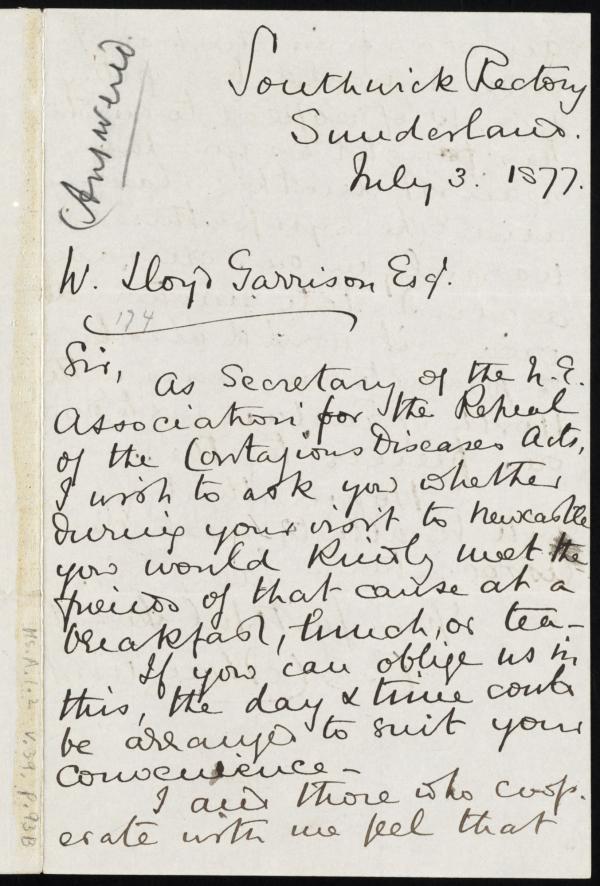 Answered.
Southwick Rectory
Sunderland.
July 3. 1877.
W. Lloyd Garrison Esq.
174
Sir,
As Secretary of the N.E.
Association for the Repeal
of the Contagious Diseases Acts,
I wish to ask you whether
during your visit to Newcastle
you would kindly meet the
friends of that cause at a
breakfast, lunch, or tea-
If you can oblige us in
this, the day & time could
be arranged to suit your
convenience-
I and those who coop-
erate with me feel that
Ms.A.1.2 v.39, p.93B